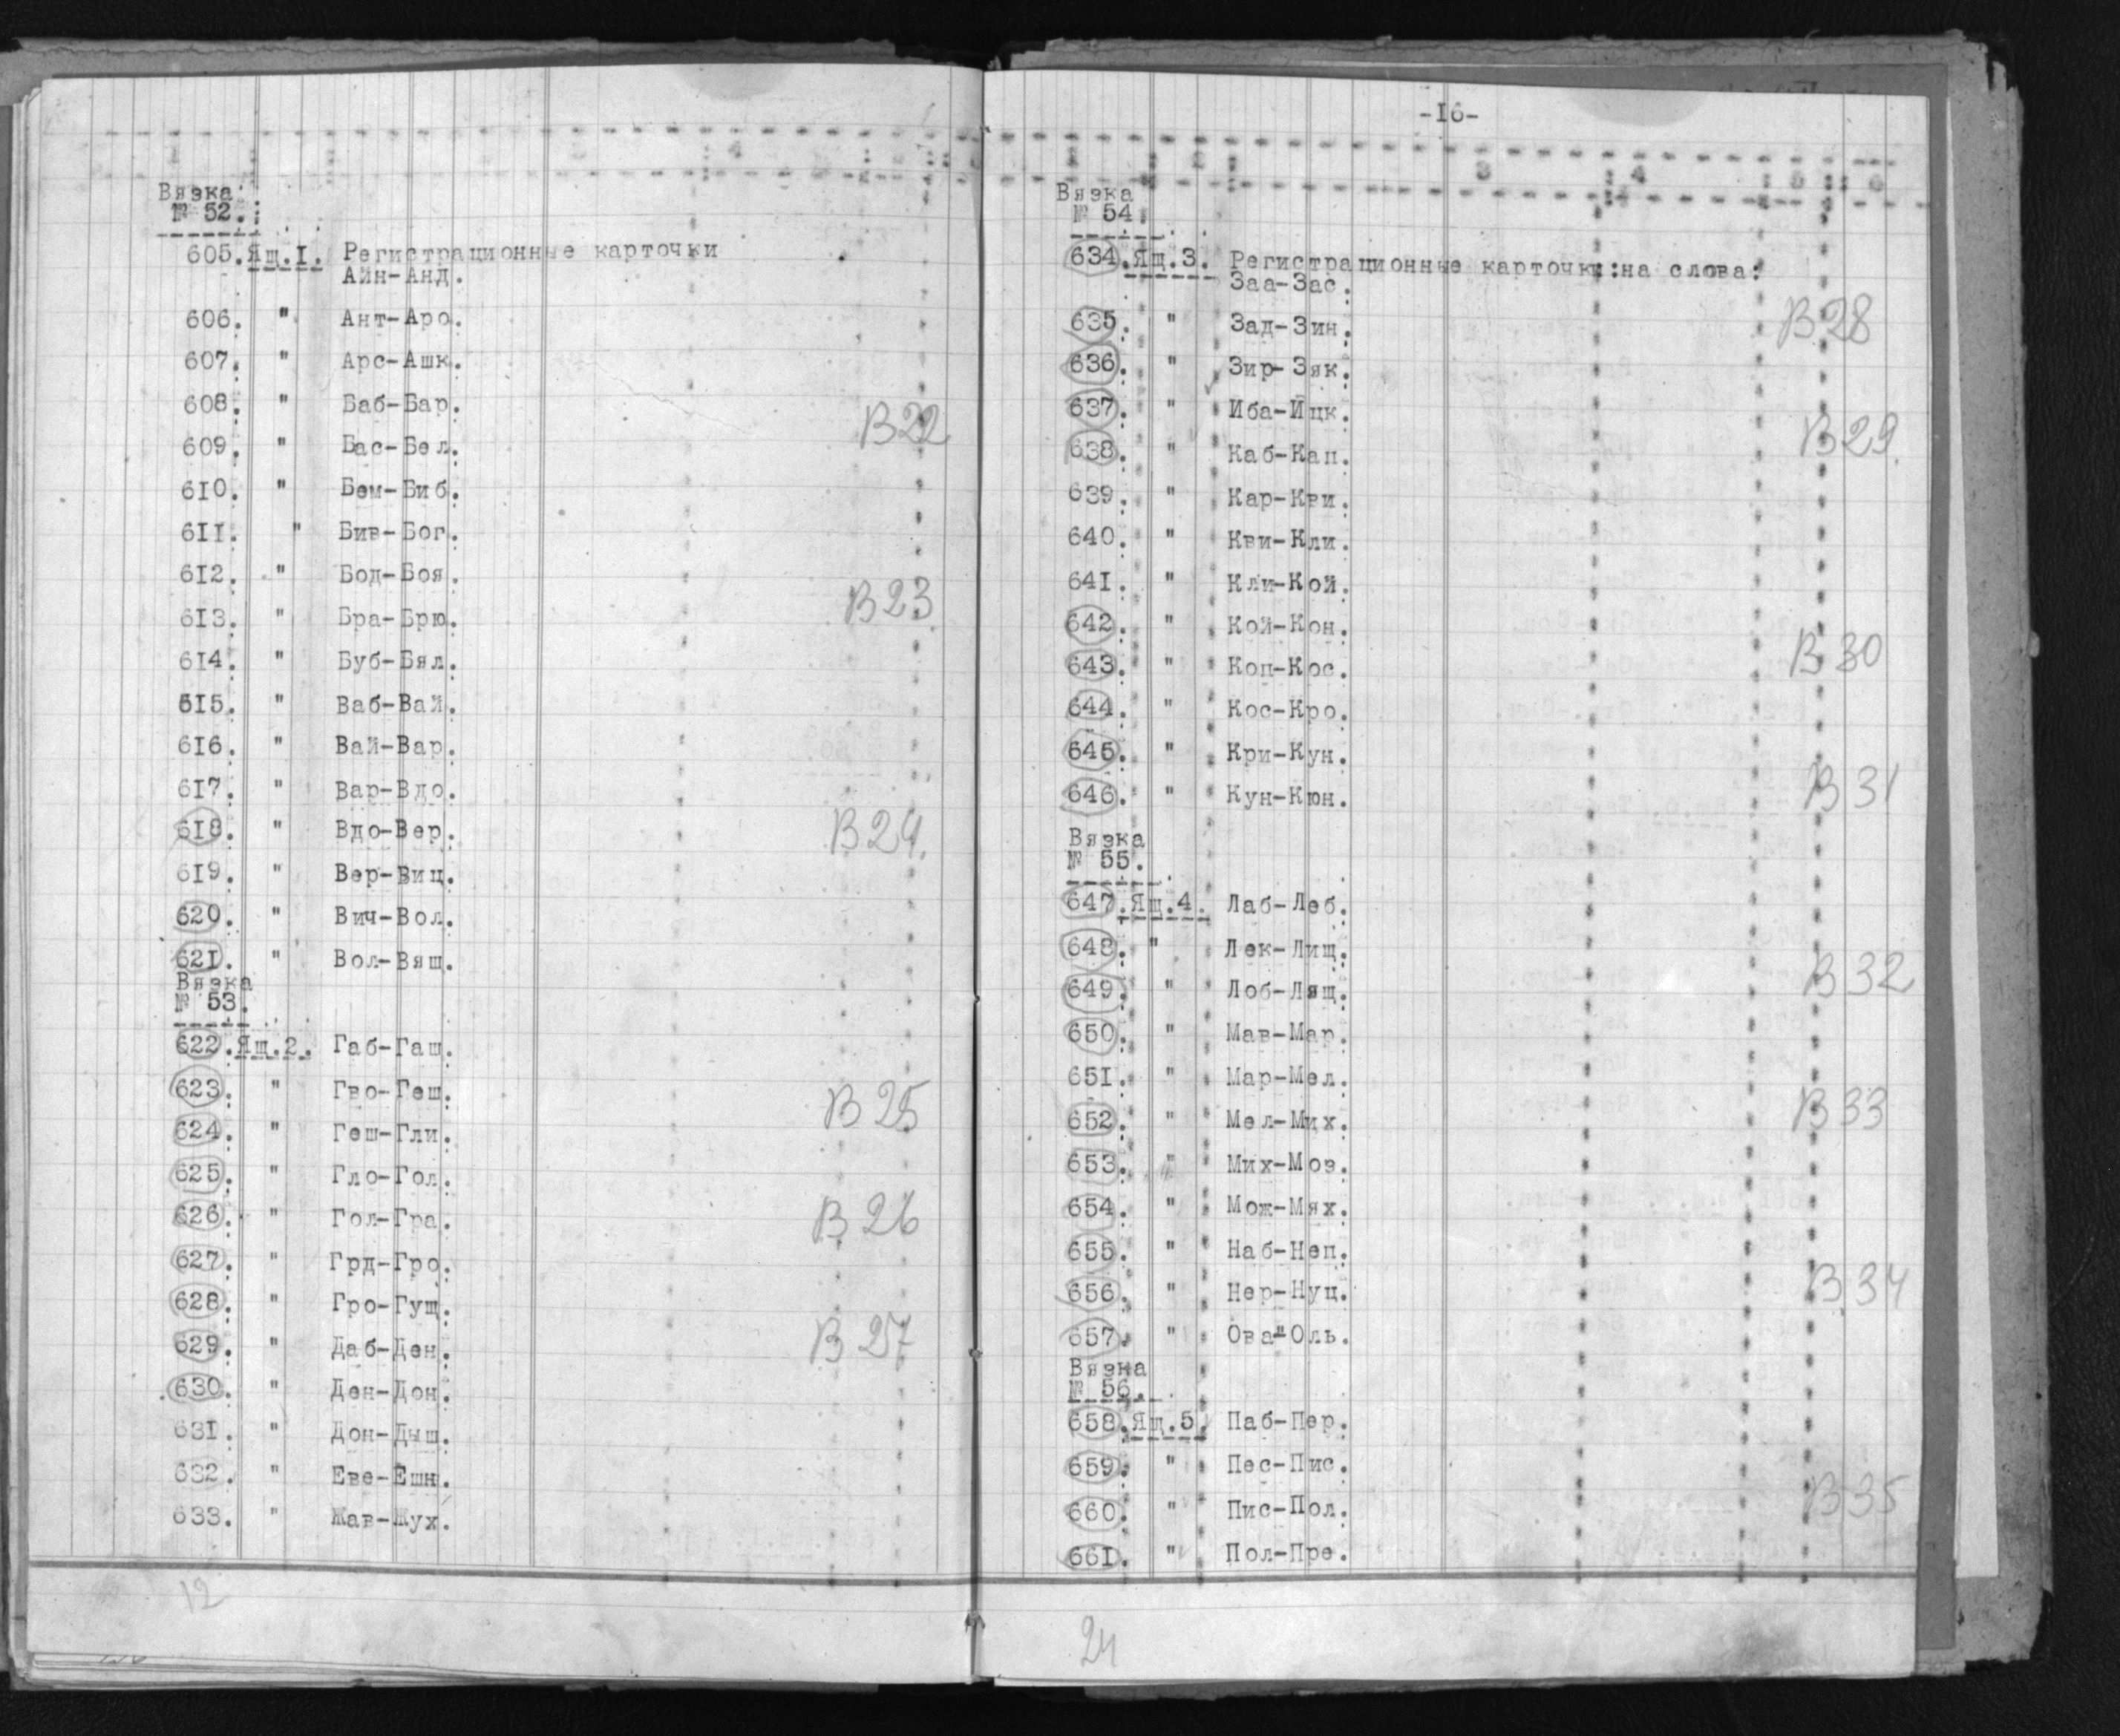 Вязка
№ 52.
605. Ящ.1. Регистрационные карточки
Айн-Анд.
606. " Ант-Аро.
607. " Арс-Ашк.
608. " Баб-Бар.
В22
609. " Бас-Бел.
610. " Бем-Биб.
611. " Бив-Бог.
612. " Бод-Боя.
В23
613. " Бра-Брю.
614. " Буб-Бял.
515. " Ваб-Вай.
616. " Вай-Вар.
617. " Вар-Вдо.
618. " Вдо-Вер.
В24.
619. " Вер-Виц.
620. " Вич-Вол.
621. " Вол-Вящ.
Вязка
№ 53.
622. Ящ.2. Габ-Гаш.
623. " Гво-Геш.
В25
624. " Геш-Гли.
625. " Гло-Гол.
626. " Гол-Гра.
В26
627. " Грд-Гро.
628. " Гро-Гущ.
629. " Даб-Ден.
В27
630. " Ден-Дон.
631. " Дон-Дыш.
632. " Еве-Ешн.
633. " Жав-Жух.
12
-16-
Вязка
№ 54.
634. Ящ.3. Регистрационные карточки:на слова:
Заа-Зас.
635. " Зад-Зин.
В28
636. " Зир-Зяк.
637. " Иба-Ицк.
В29.
638. " Каб-Кап.
639. " Кар-Кви.
640. " Кви-Кли.
641. " Кли-Кой.
642. " Кой-Кон.
В30
643. " Коп-Кос.
644. " Кос-Кро.
645. " Кри-Кун.
646. " Кун-Кюн.
В31
Вязка
№ 55.
647. Ящ.4. Лаб-Леб.
648. " Лек-Лищ.
В32
649. " Лоб-Лящ.
650. " Мав-Мар.
651. " Мар-Мел.
652. " Мел-Мих.
В33
653. " Мих-Моз.
654. " Мож-Мях.
655. " Наб-Неп.
656. " Нер-Нуц.
В34
657. " Ова-Оль.
Вязка
№ 56.
658. Ящ.5. Паб-Пер.
659. " Пес-Пис.
В35
660. " Пис-Пол.
661. " Пол-Пре.
24